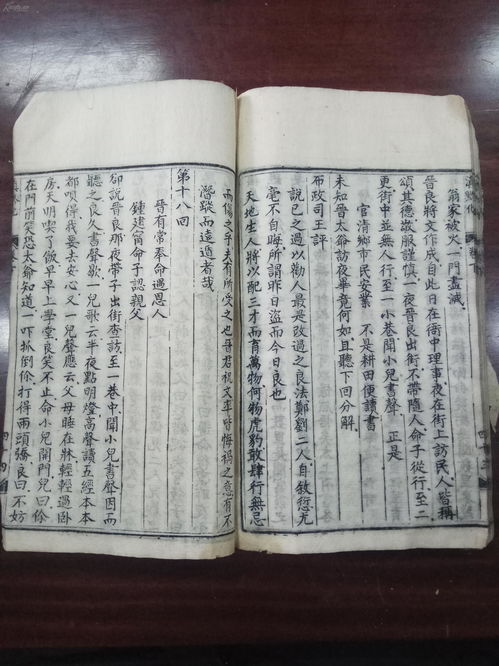 翁家被火一門盡滅
晉良將文作成自此日在衙中理事夜在街上訪民人皆稱
頌其德敬服謹慎一夜晉良出衙不帶隨人命子從行至二
更街中並無人行至一小巷聞小兒書聲正是
官清鄉市民安業 不是耕田便讀書
未知晉太爺訪夜畢竟何如且聽下回分解
布政司王評
說己之過以勸人最是改過之良法鄭劉二人自敘愆尤
毫不自晦所謂昨日盜而今日良也
天地生人將以配三才而育萬物何物虎豹敢肆行無忌
而傷之乎夫有所受之也晉君祝文年皆悔禍之意有不
潛蹤而遠遁者哉
第十八回
晉有常奉命過恩人
鍾建甯命子認親父
卻說晉良那夜帶子出街查訪至一巷中聞小兒書聲因而
聽之良久書聲歇一兒歌云半夜點明燈高聲讀五經本本
都唄得我要去安心又一兒聲應云父母睡在牀輕輕過卧
房天明喫了飯早早上學堂良笑不止命小兒開門兒曰你
在門前笑恐太爺知道一吓抓倒你打得兩頭張良曰不妨